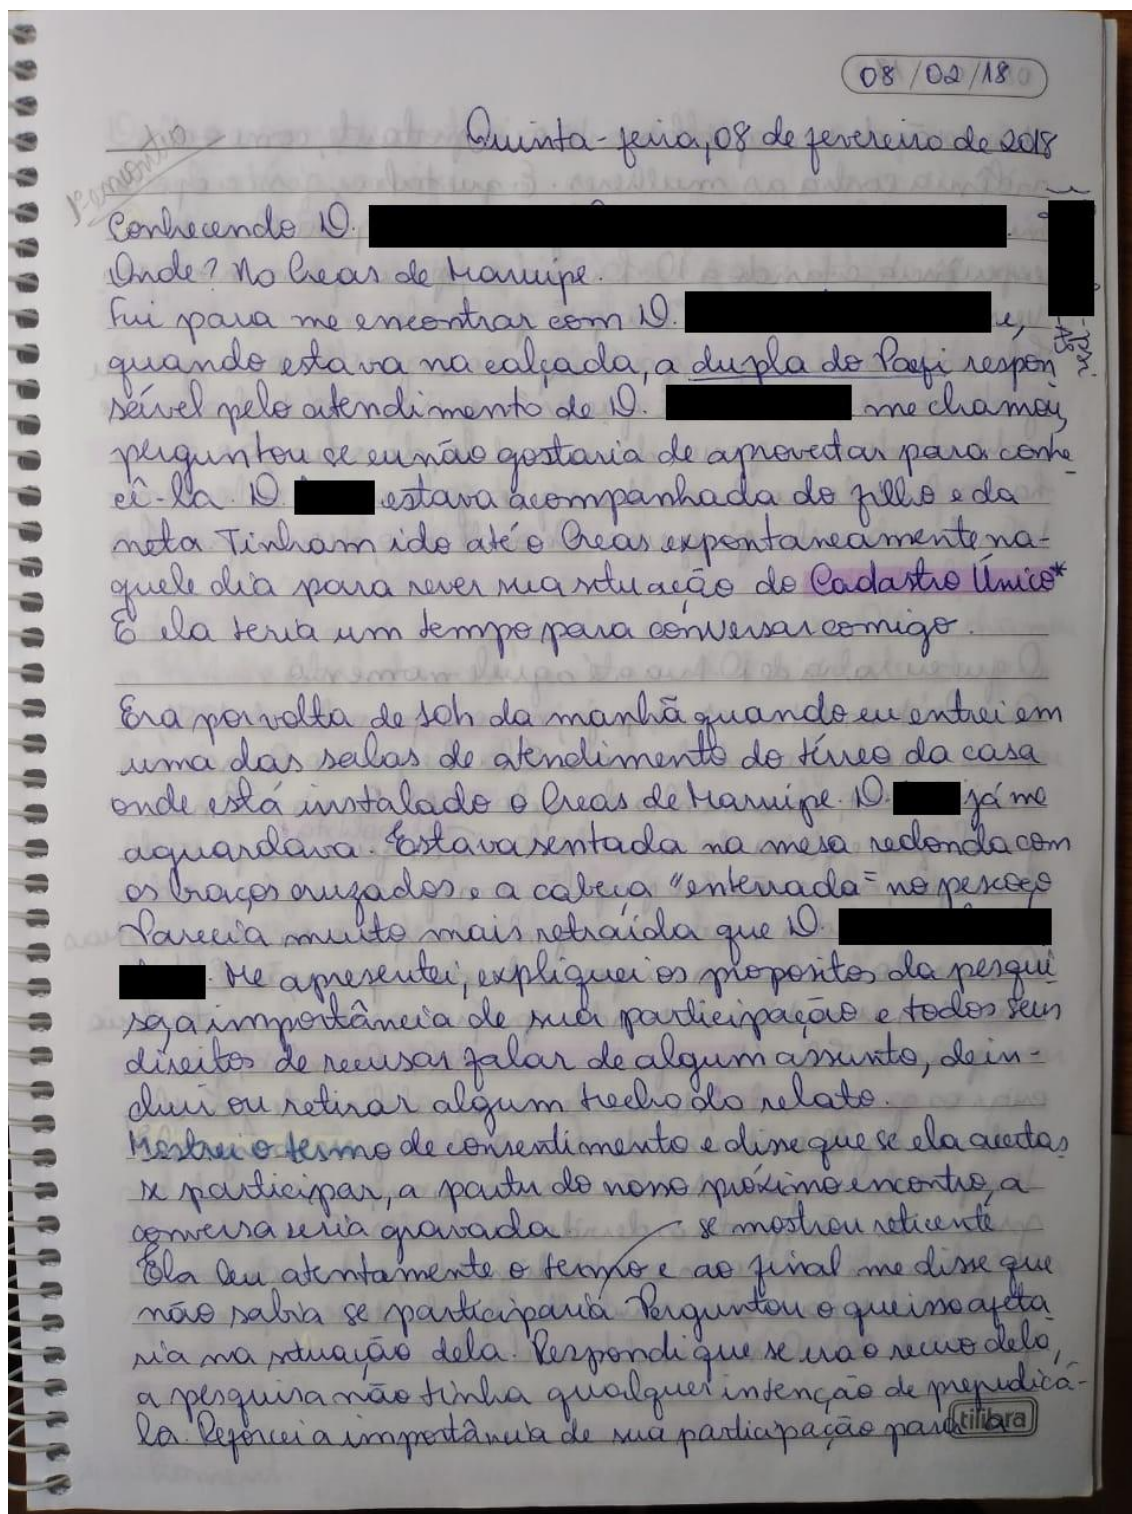 08/02/18
Quinta-feira, 08 de fevereiro de 2018
1º encontro
Conhecendo D.
Onde? No Creas de Maruípe.
Fui para me encontrar com D. e,
quando estava na calçada, a dupla do Paefi respon
sável pelo atendimento de D. me chamou,
perguntou se eu não gostaria de aproveitar para conhe
cê-la. D. estava acompanhada do filho e da
neta. Tinham ido até o Creas expontaneamente na-
quele dia para rever sua situação do Cadastro Único*
E ela teria um tempo para conversar comigo.
Era por volta de 10h da manhã quando eu entrei em
uma das salas de atendimento do térreo da casa
onde está instalado o Creas de Maruípe. D. já me
aguardava. Estava sentada na mesa redonda com
os braços cruzados e a cabeça "enterrada" no pescoço
Parecia muito mais retraída que D.
. Me apresentei, expliquei os propositos da pesqui
sa, a importância de sua participação e todos seus
direitos de recusar falar de algum assunto, de in-
cluir ou retirar algum trecho do relato.
Mostrei o termo de consentimento e disse que se ela aceitas
se participar, a partir do nosso próximo encontro, a
conversa seria gravada. se mostrou reticente
Ela leu atentamente o termo e ao final me disse que
não sabia se participaria Perguntou o que isso afeta
ria na situação dela. Respondi que se era o receio dela,
a pesquisa não tinha qualquer intenção de prejudicá-
la. Reforcei a importância de sua participação para a
tilibra